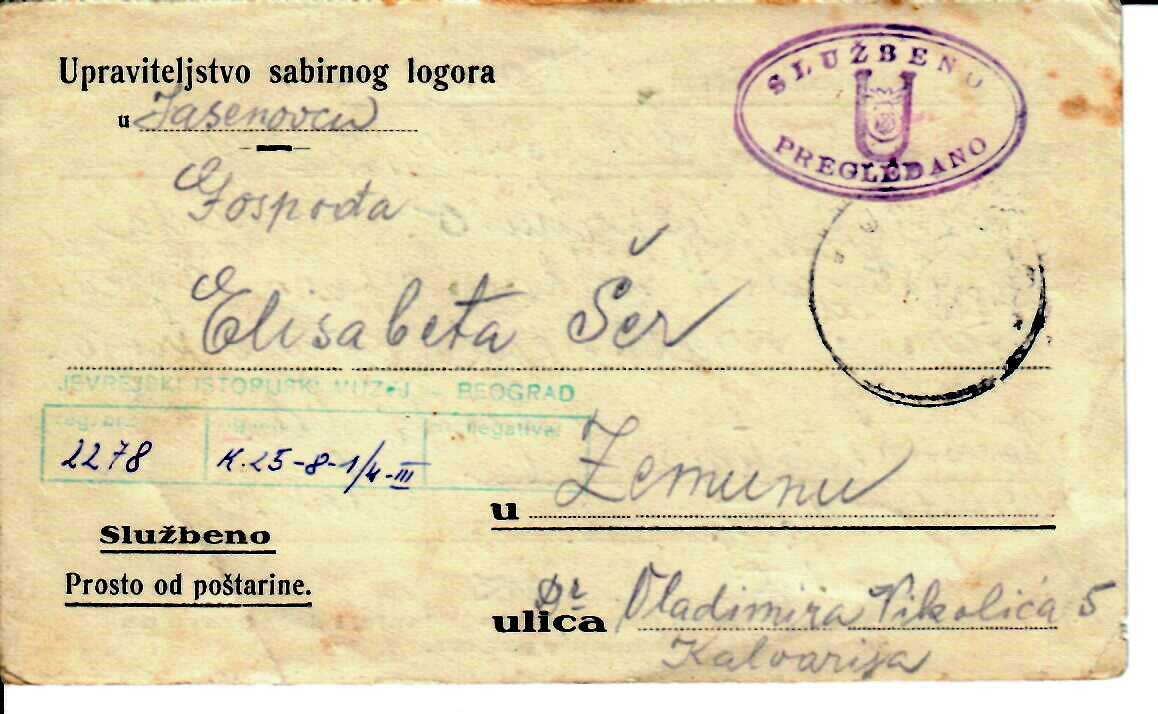 Upraviteljstvo sabirnog logora
u Jasenovcu
SLUŽBENO
U
PREGLEDANO
Gospođa
Elisabeta Šer
JEVREJSKI ISTORIJSKI MUZEJ - BEOGRAD
negativa:
2278 K.25-8-1/4-III
u Zemunu
Službeno
Prosto od poštarine.
ulica Dr Vladimira Nikolića 5
Kalvarija